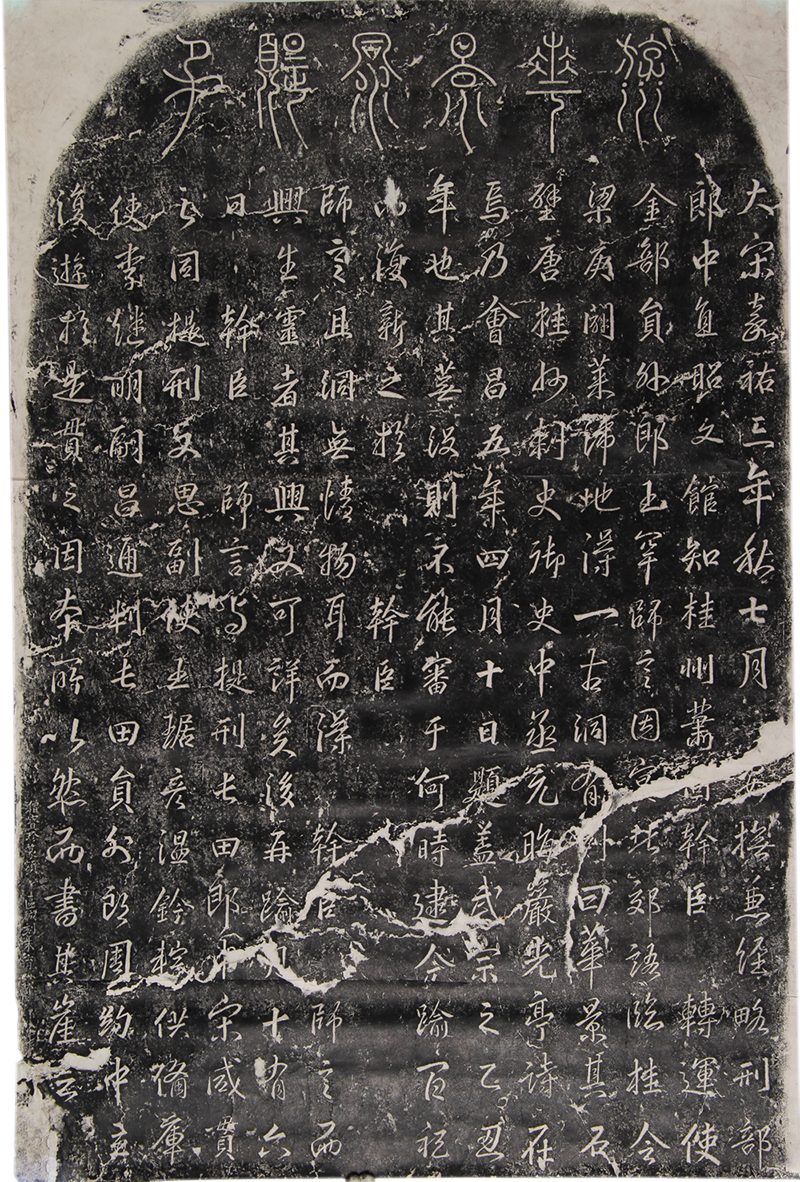 華景
大宋嘉祐三年秋七月安撫兼經略刑部
郎中直昭文館知桂州蕭固幹臣轉運使
金部員外郎王罕師言因郊語臨桂令
梁庾闢萊掃地得一古洞有刻曰華景其石
壁唐桂州刺史御史中丞元晦巖光亭詩在
焉乃會昌五年四月十日題蓋武宗之乙丑
年也其蕪没則不能審于何時逮今踰百祀
而復新之於幹臣
師言且洞無情物耳而深幹臣師言而
興生靈者其興又可詳矣後再踰月十有六
日幹臣師言與提刑屯田郎中宋咸貫
之同提刑文思副使琚彥温鈐轄供備庫
使李繼明嗣昌通判屯田員外郎周約中立
復遊於是貫之因本所以然而書其崖云